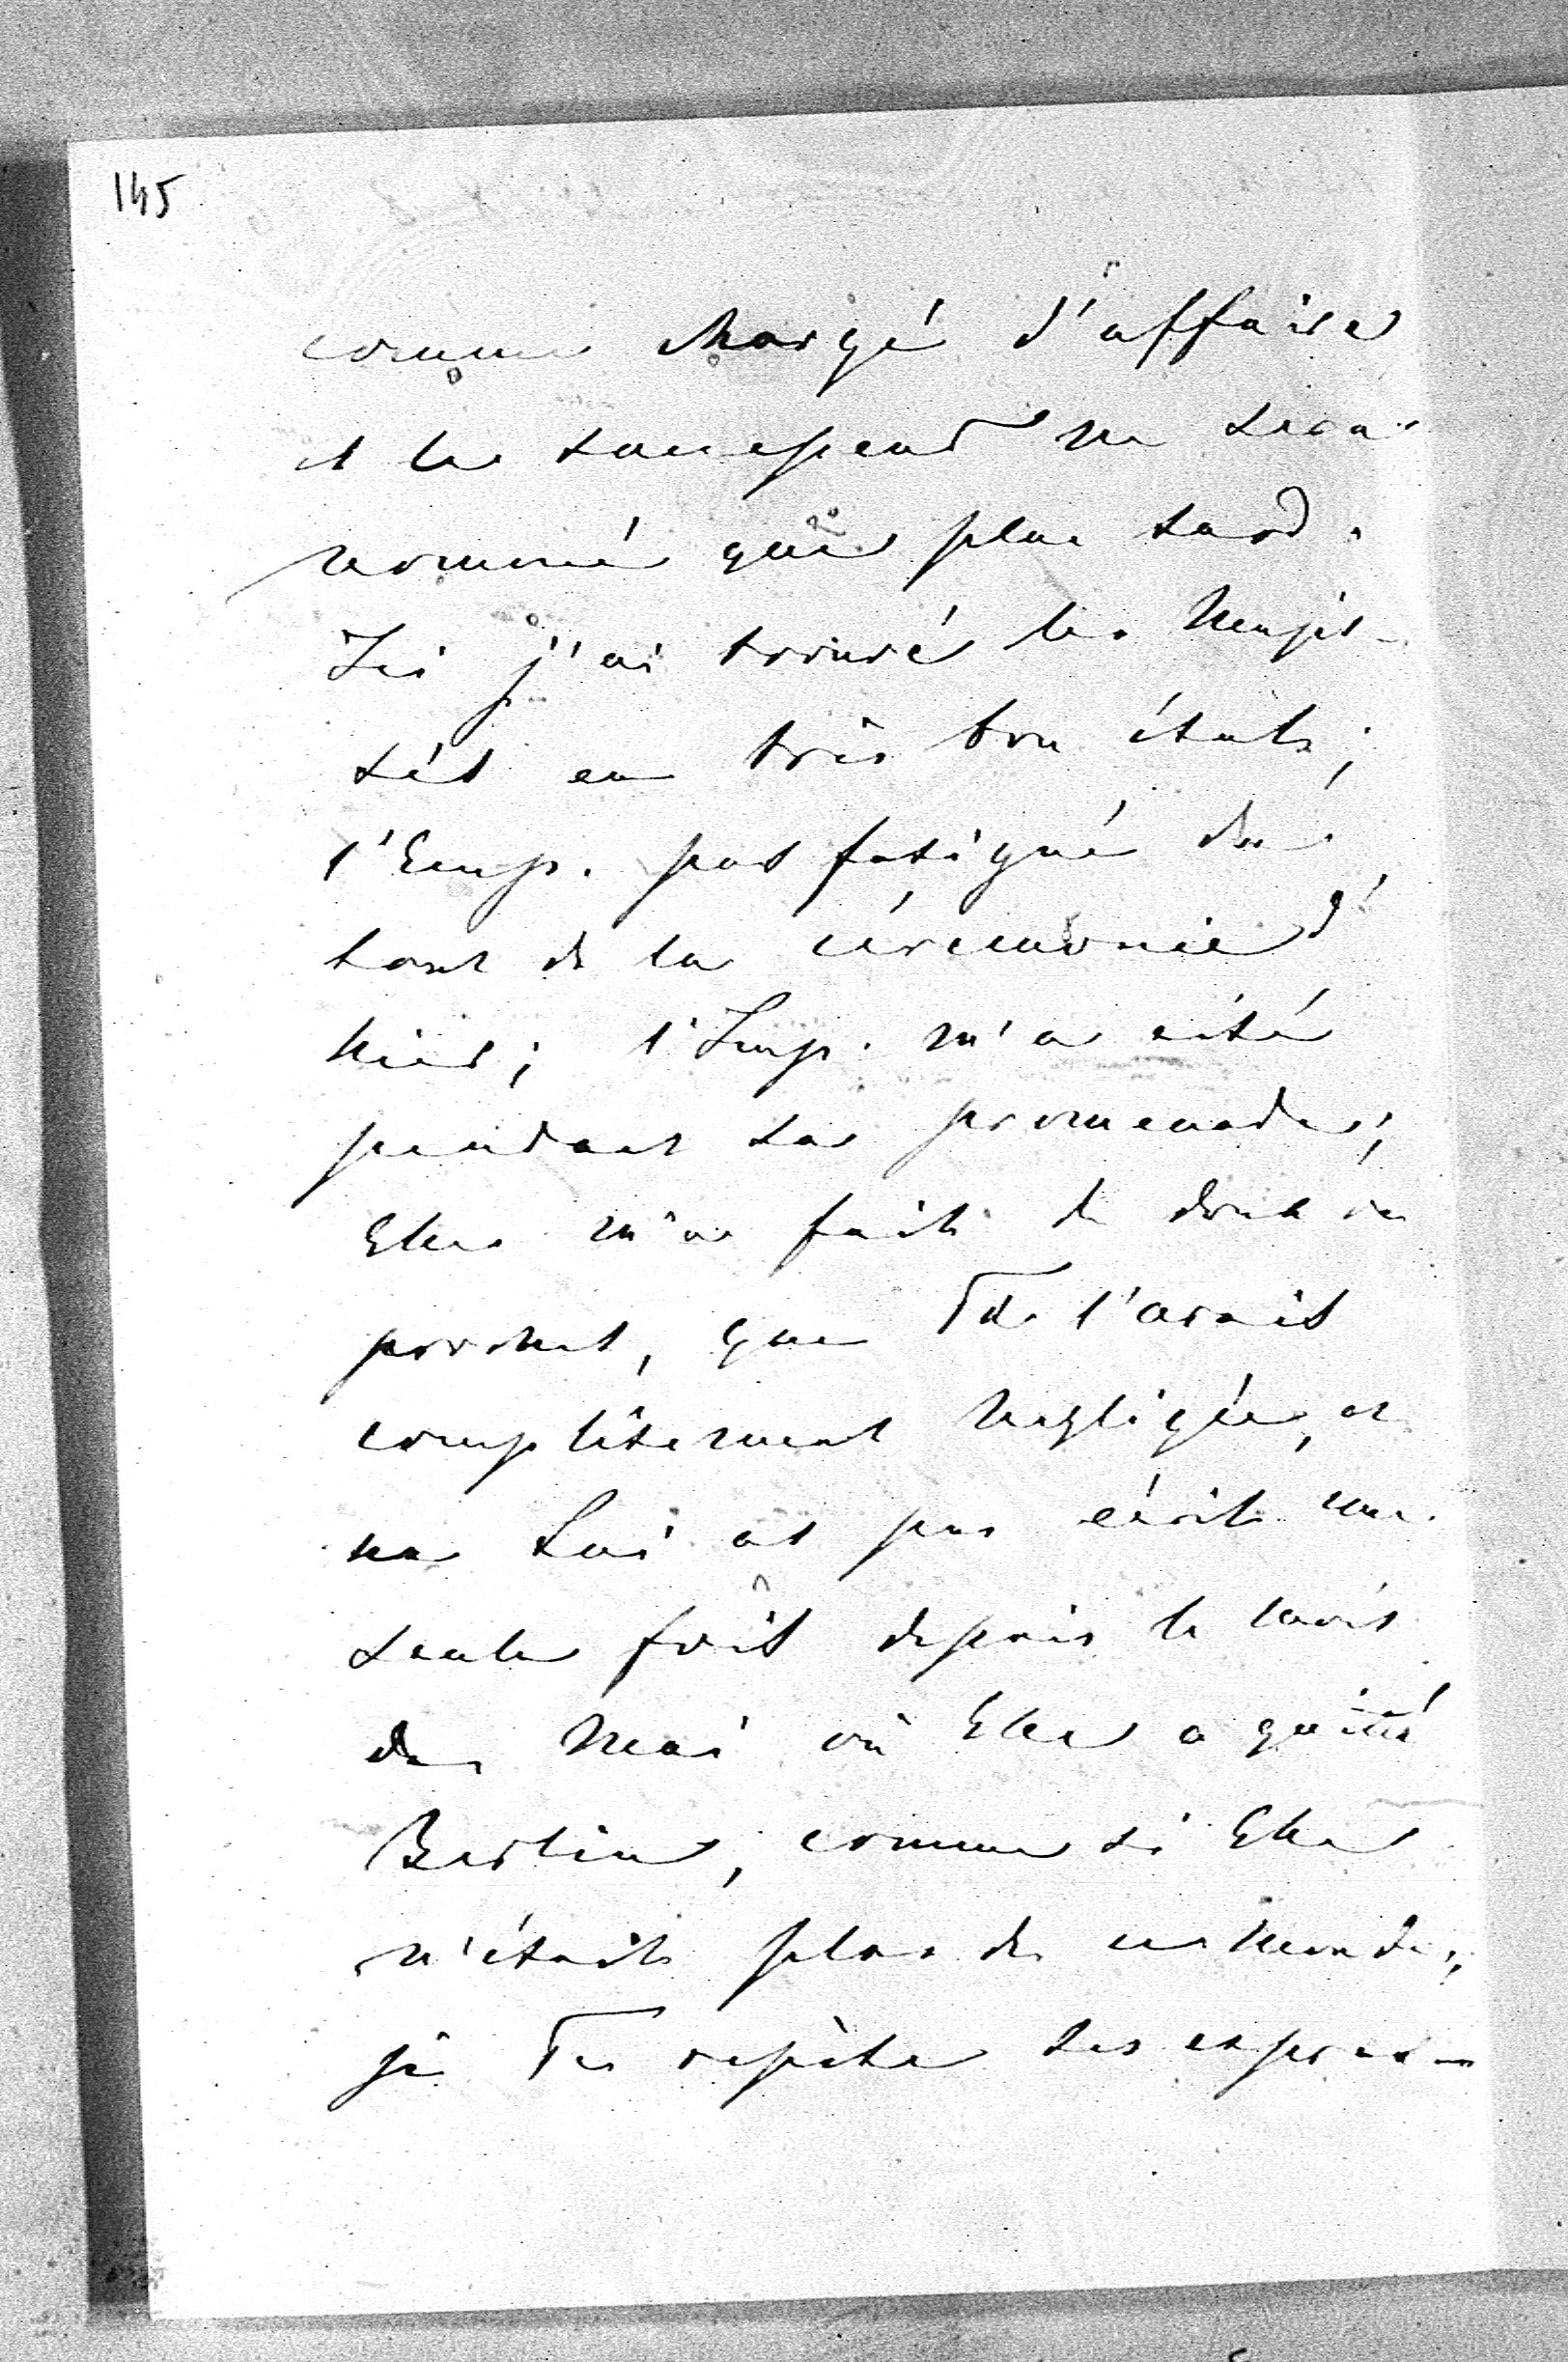 145
comme chargé d'affaires
et le successeur ne sera
nommé que plus tard.
Ici j'ai trouvé les Majes-
tés en très bon état;
l'Emp. pas fatigué du
tout de la cérémonie d'
hier; l'Imp. m'a cité
pendant sa promenade;
Elle m'a fait de doux re
proches, que Tu l'avais
complètement negligée, et
ne Lui as pas écrit une
seule fois depuis le mois
de Mai où Elle a quitté
Berlin, comme si Elle
n'était plus de ce monde;
je Te repète ses expres-